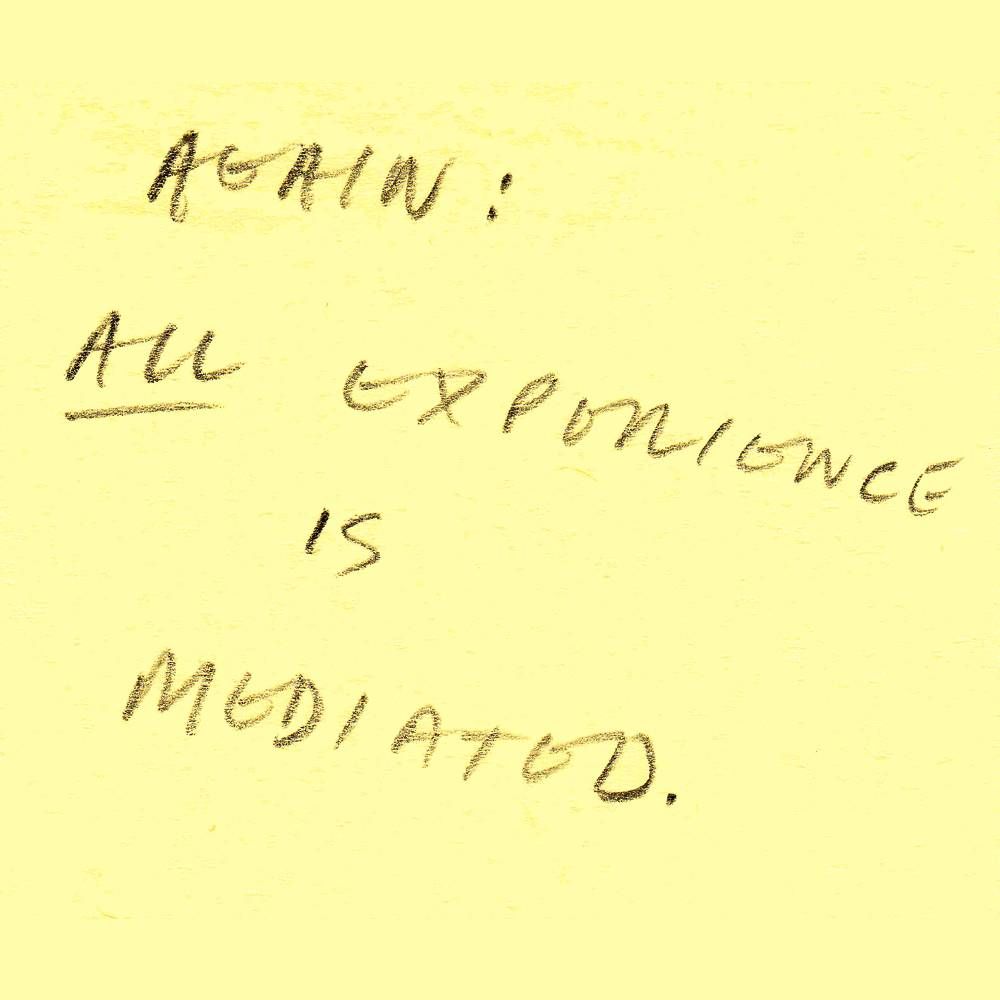 AGAIN:
ALL EXPERIENCE
IS
MEDIATED.